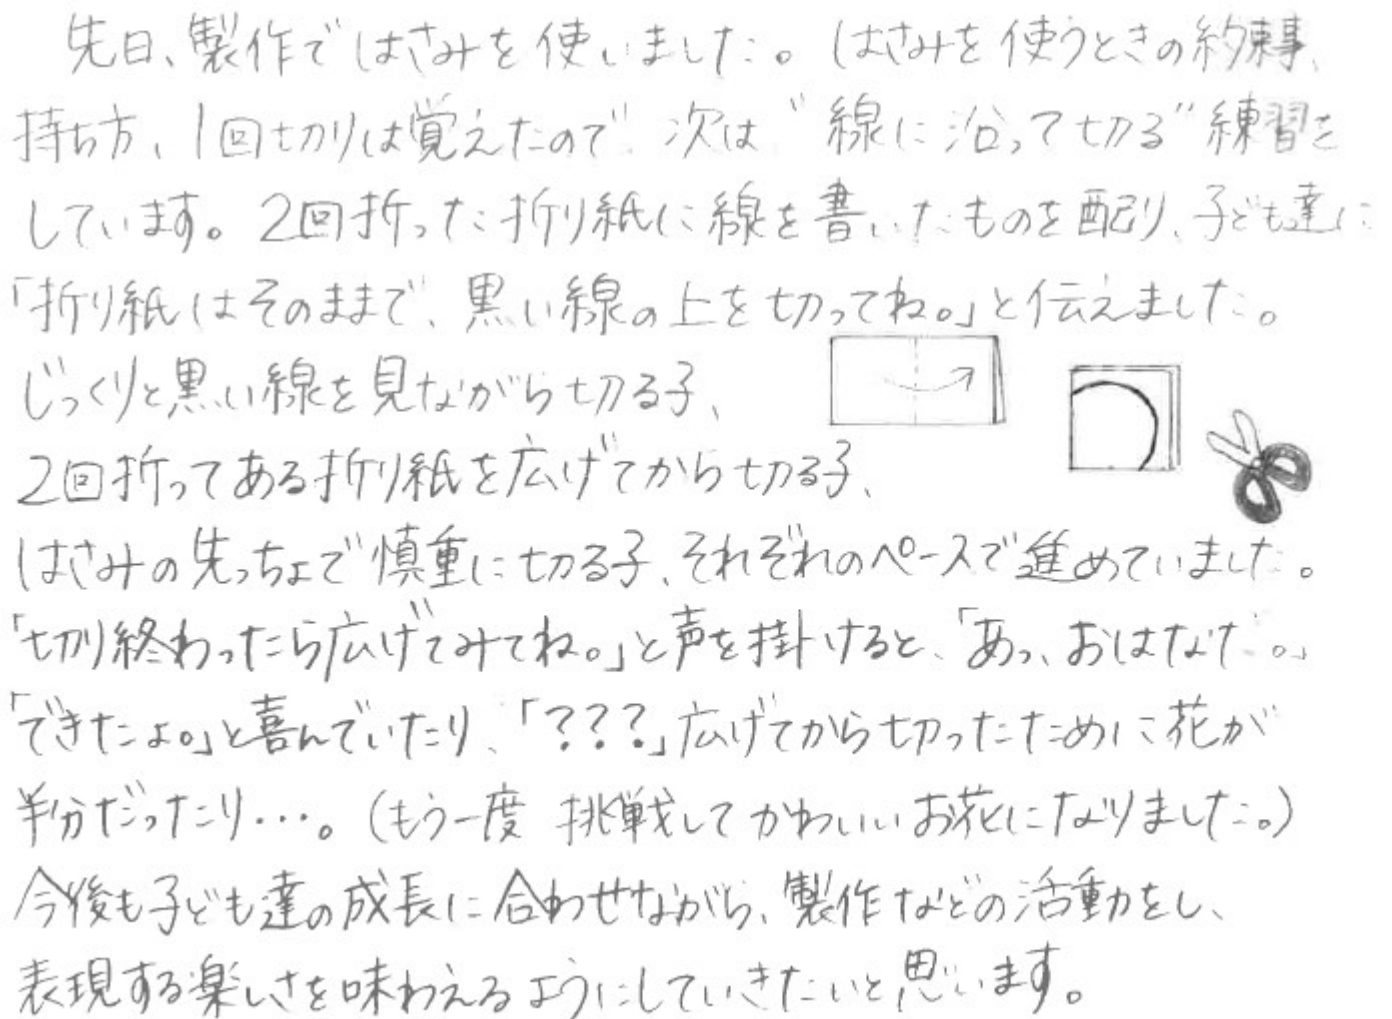 先日、製作ではさみを使いました。はさみを使うときの約束事、
持ち方、1回切りは覚えたので、次は〝線に沿って切る〟練習を
しています。2回折った折り紙に線を書いたものを配り、子ども達に
「折り紙はそのままで、黒い線の上を切ってね。」と伝えました。
じっくりと黒い線を見ながら切る子、
2回折ってある折り紙を広げてから切る子、
はさみの先っちょで慎重に切る子、それぞれのペースで進めていました。
「切り終わったら広げてみてね。」と声を掛けると、「あっ、おはなだ。」
「できたよ。」と喜んでいたり、「???」広げてから切ったために花が
半分だったり・・・。(もう一度 挑戦してかわいいお花になりました。)
今後も子ども達の成長に合わせながら、製作などの活動をし、
表現する楽しさを味わえるようにしていきたいと思います。